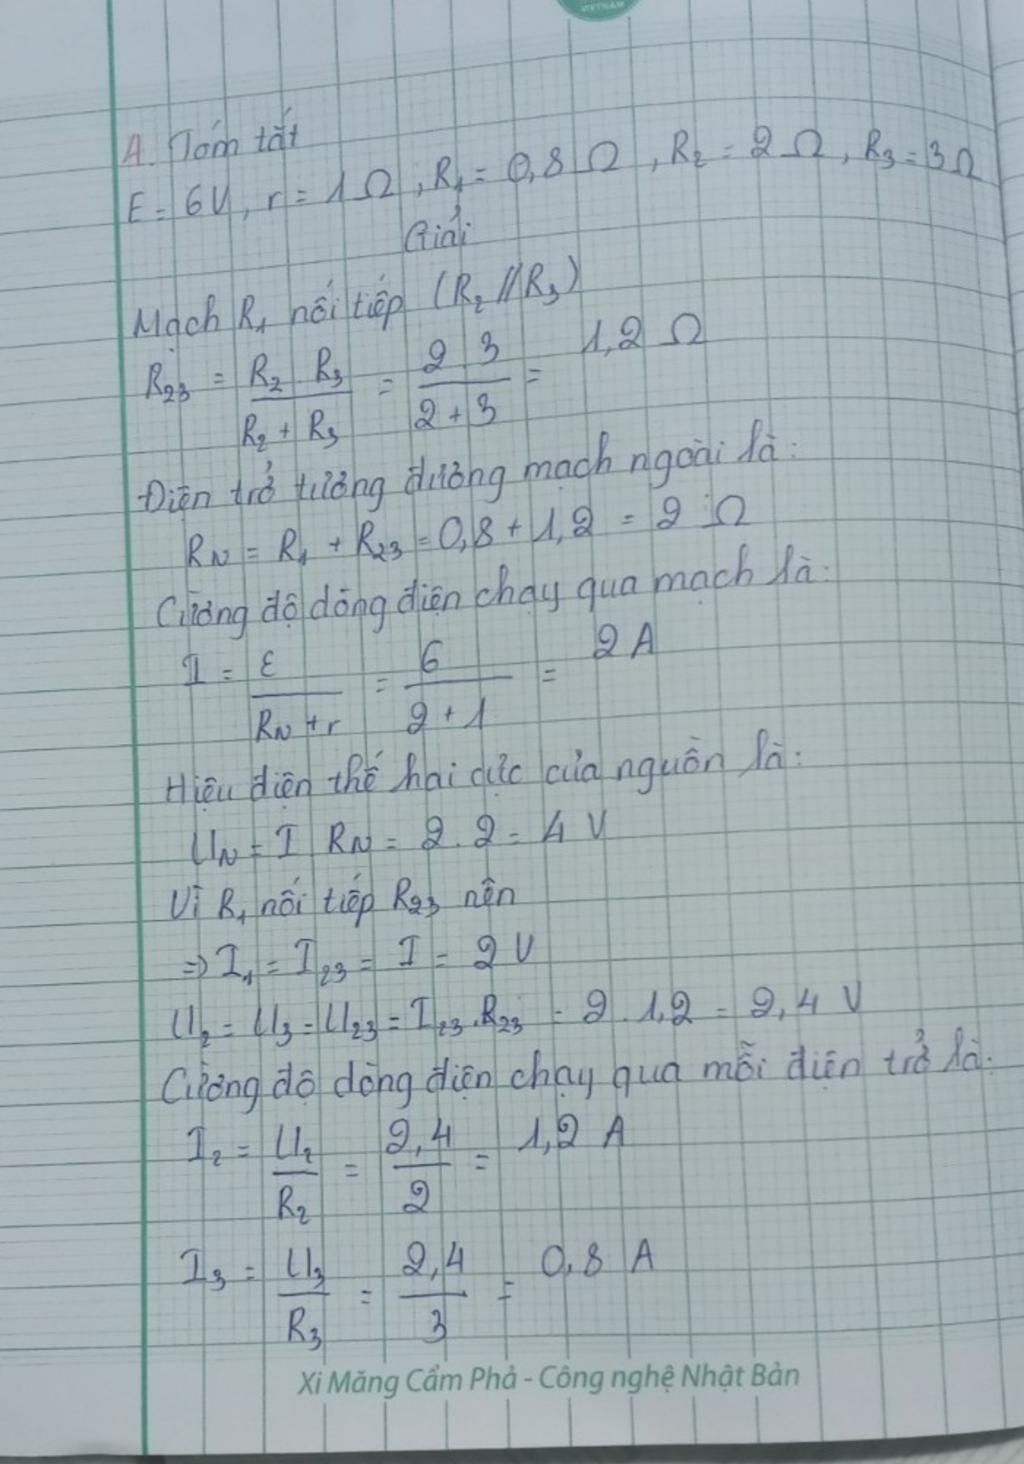 VIETNAM
A. Tóm tắt
E = 6V, r = 1Ω, R₁ = 0,8 Ω, R₂ = 2 Ω, R₃ = 3Ω
Giải
Mạch R₁ nối tiếp (R₂ // R₃)
R₂₃ = (R₂ . R₃)/(R₂ + R₃) = (2 . 3)/(2 + 3) = 1,2 Ω
Điện trở tương đương mạch ngoài là:
R_N = R₁ + R₂₃ = 0,8 + 1,2 = 2 Ω
Cường độ dòng điện chạy qua mạch là:
I = ε/(R_N + r) = 6/(2 + 1) = 2 A
Hiệu điện thế hai cực của nguồn là:
U_N = I R_N = 2 . 2 = 4 V
Vì R₁ nối tiếp R₂₃ nên
⇒ I₁ = I₂₃ = I = 2 V
U₂ = U₃ = U₂₃ = I₂₃ . R₂₃ = 2 . 1,2 = 2,4 V
Cường độ dòng điện chạy qua mỗi điện trở là:
I₂ = U₂/R₂ = 2,4/2 = 1,2 A
I₃ = U₃/R₃ = 2,4/3 = 0,8 A
Xi Măng Cẩm Phả - Công nghệ Nhật Bản